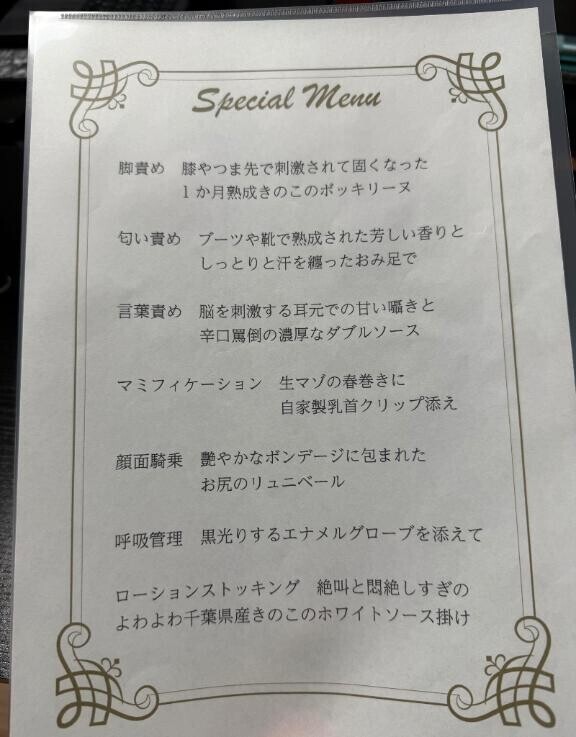 Special Menu
脚責め　膝やつま先で刺激されて固くなった
１か月熟成きのこのボッキリーヌ
匂い責め　ブーツや靴で熟成された芳しい香りと
しっとりと汗を纏ったおみ足で
言葉責め　脳を刺激する耳元での甘い囁きと
辛口罵倒の濃厚なダブルソース
マミフィケーション　生マゾの春巻きに
自家製乳首クリップ添え
顔面騎乗　艶やかなボンデージに包まれた
お尻のリュニベール
呼吸管理　黒光りするエナメルグローブを添えて
ローションストッキング　絶叫と悶絶しすぎの
よわよわ千葉県産きのこのホワイトソース掛け